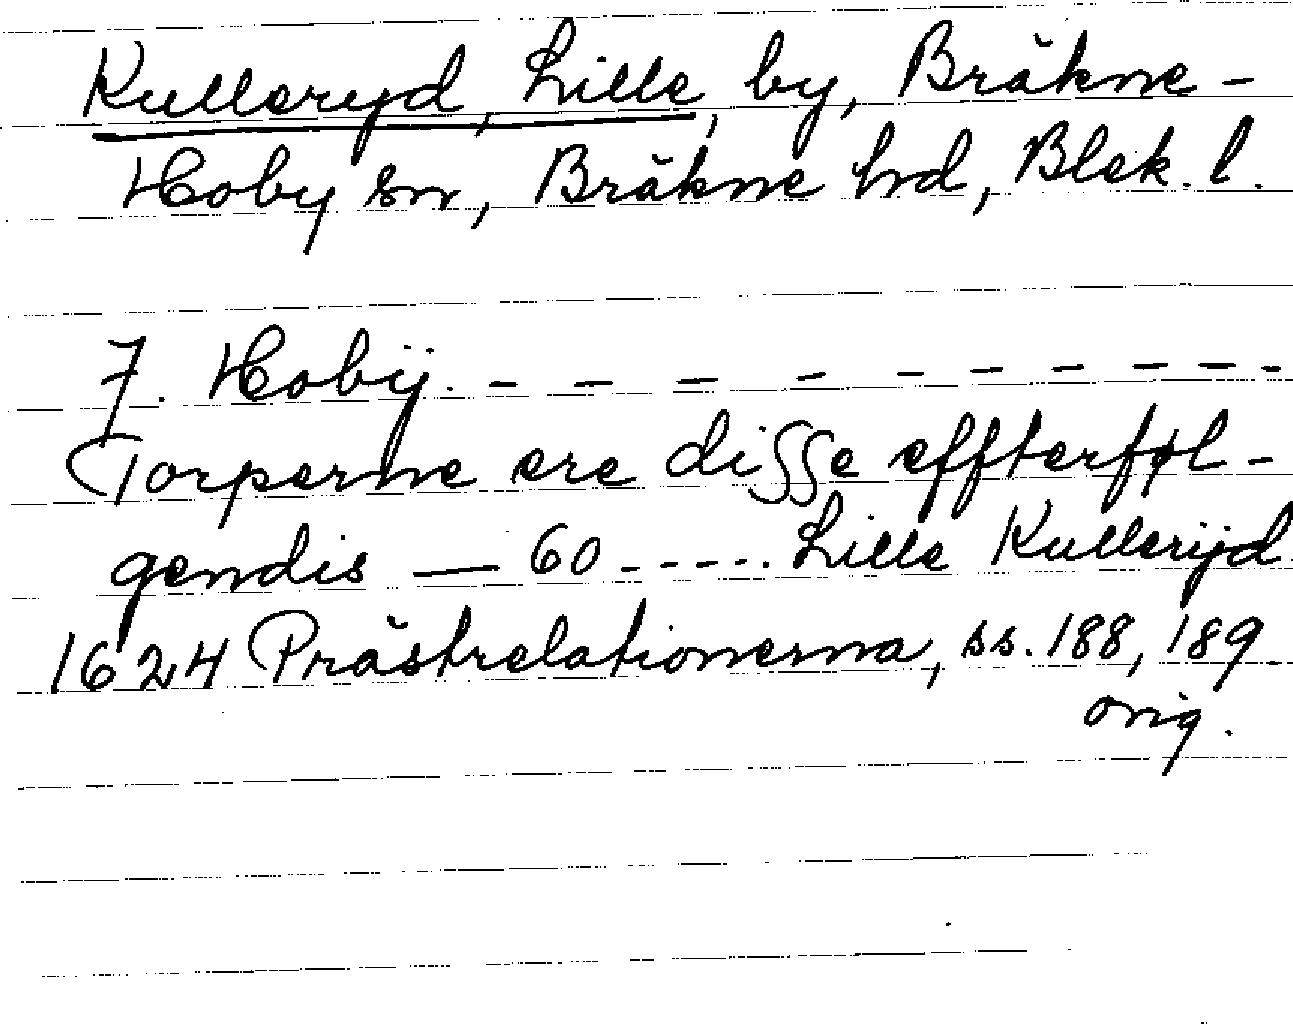 Kulleryd, Lille, by, Bräkne-
Hoby sn, Bräkne hd, Blek. l.
7. Hobÿ. - - - - - - - - - -
Torperne ere disse effterføl-
gendis — 60 - - - - . . Lille Kullerijd
1624 Prästrelationerna, ss. 188, 189
orig.